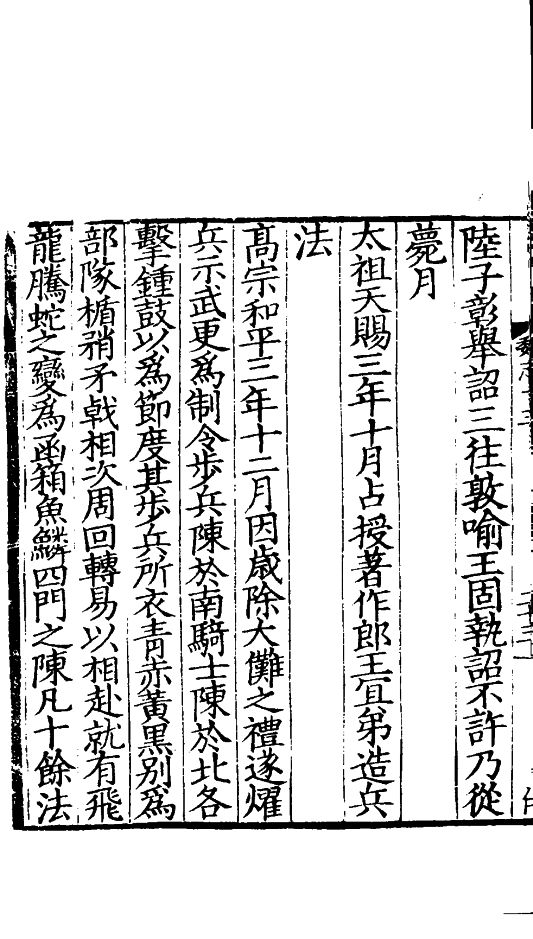 陸子彰舉詔三往敦喻王固執詔不許乃從
薨月
太祖天賜三年十月占授著作郎王宜弟造兵
法
髙宗和平三年十二月因歲除大儺之禮遂燿
兵示武更爲制令步兵陳於南騎士陳於北各
擊鍾鼓以爲節度其步兵所衣青赤黃黒別爲
部隊楯矟矛戟相次周回轉易以相赴就有飛
龍騰蛇之變爲函箱魚鱗四門之陳凡十餘法